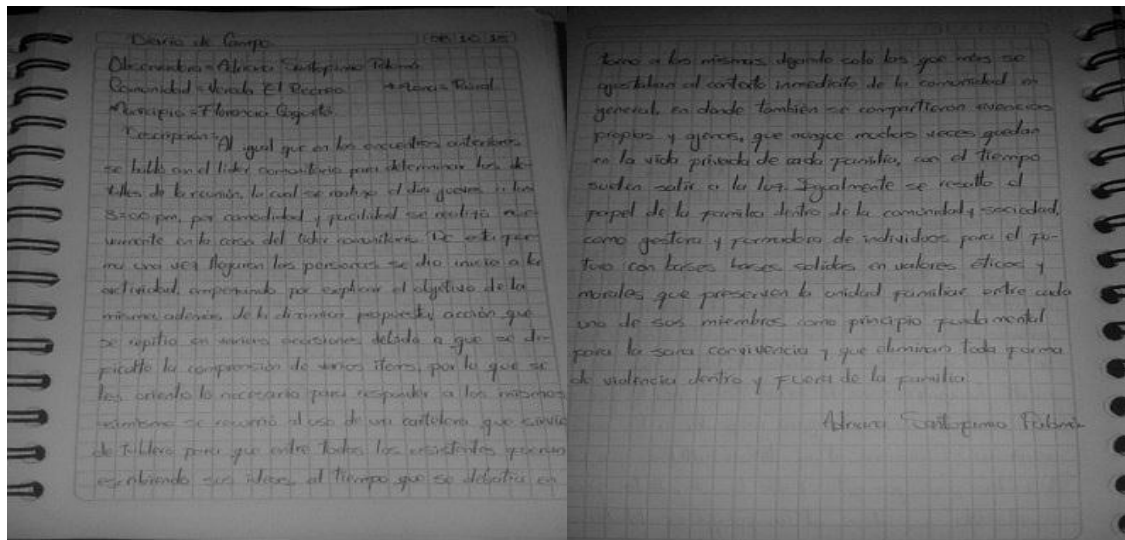 Diario de Campo
Observadora = Adriana Santofimio
Comunidad = Vereda El Recreo * Zona = Rural
Municipio = Florencia Caquetá
Descripción = Al igual que en los encuentros anteriores
se habló con el líder comunitario para determinar los de-
talles de la reunión, la cual se realizo el día jueves a las
3=00 pm, por comodidad y facilidad se realizó nue-
vamente en la casa del líder comunitario. De esta for-
ma una vez llegaron las personas se dio inicio a la
actividad, empezando por explicar el objetivo de la
misma además de la dinámica propuesta, acción que
se repitio en varias ocasiones debido a que se di-
ficulto la comprensión de varios items, por lo que se
les oriento lo necesario para responder a los mismos
asimismo se recurrió al uso de una cartelera que sirvió
de tablero para que entre todos los asistentes fueran
escribiendo sus ideas, al tiempo que se debatía en
torno a las mismas dejando solo las que más se
ajustaban al contexto inmediato de la comunidad en
general, en donde también se compartieron vivencias
propias y ajenas, que aunque muchas veces quedan
en la vida privada de cada familia, con el tiempo
suelen salir a la luz. Igualmente se resalto el
papel de la familia dentro de la comunidad y sociedad,
como gestora y formadora de individuos para el fu-
turo con bases bases solidas en valores éticos y
morales que preserven la unidad familiar entre cada
uno de sus miembros como principio fundamental
para la sana convivencia y que eliminan toda forma
de violencia dentro y fuera de la familia.
Adriana Santofimio